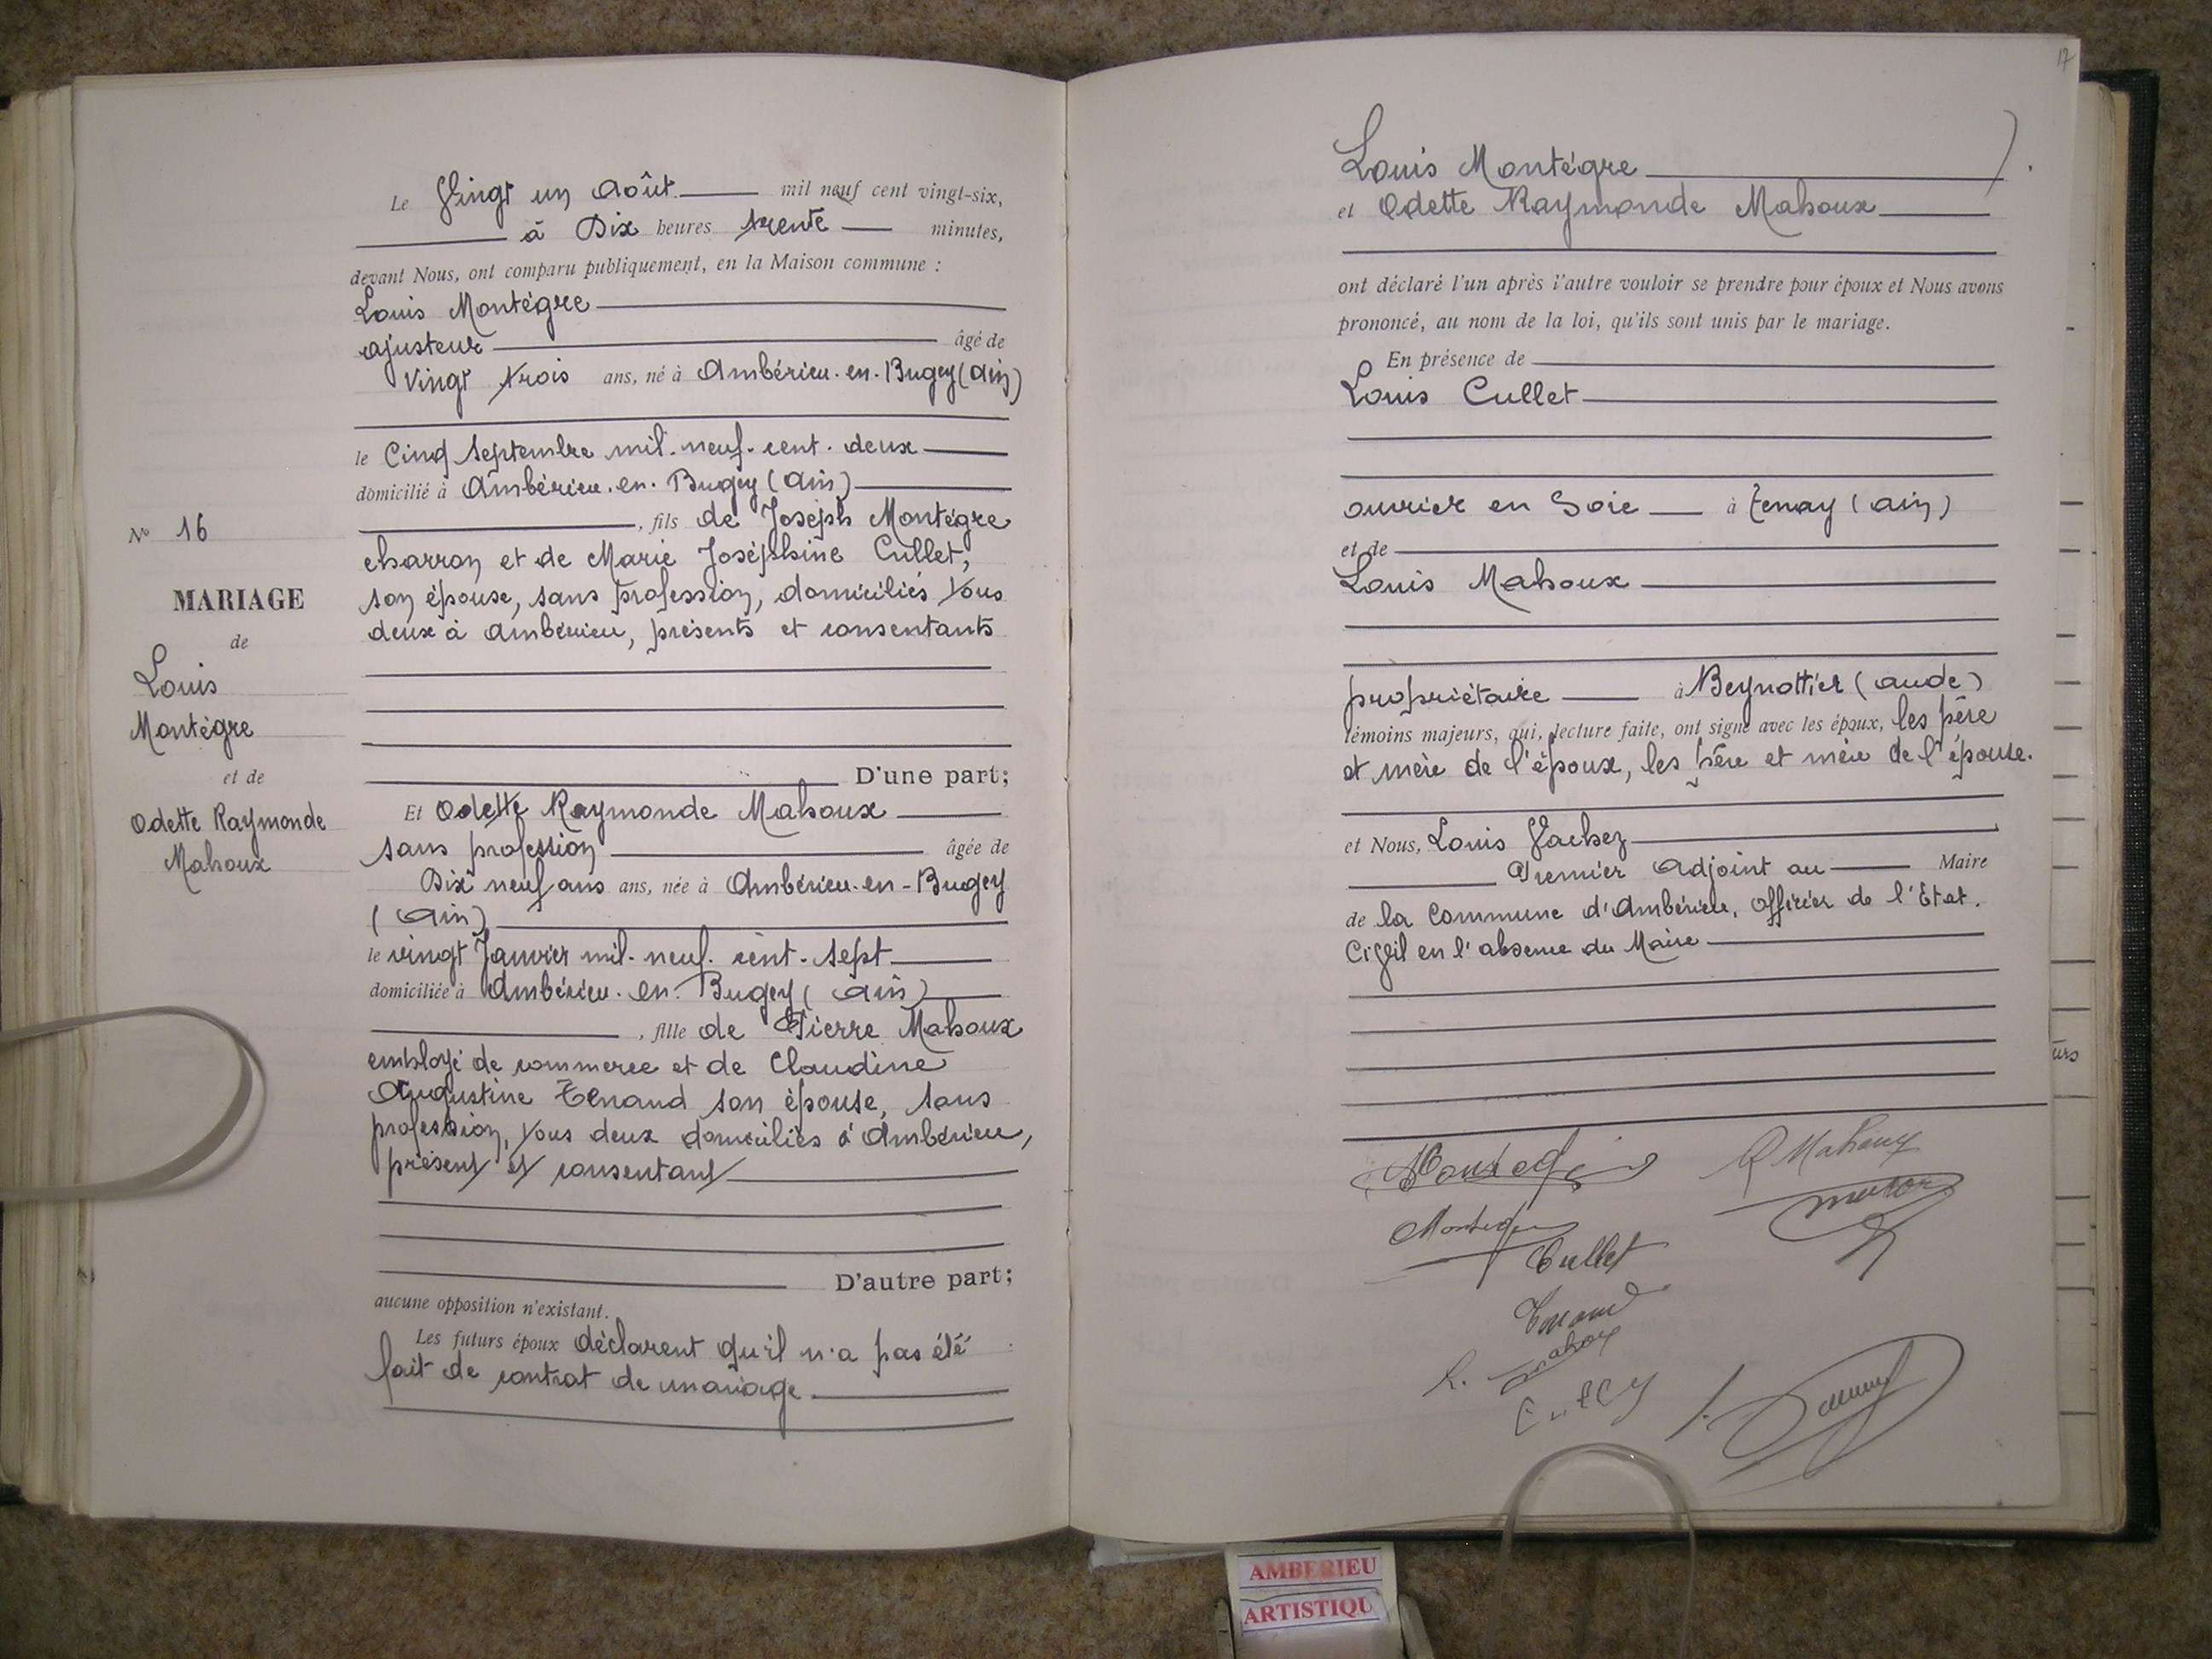 Le Vingt un Août mil neuf cent vingt-six,
à Dix heures trente minutes,
devant Nous, ont comparu publiquement, en la Maison commune :
Louis Montégre
ajusteur âgé de
Vingt trois ans, né à Ambérieu-en-Bugey (Ain)
le Cinq Septembre mil-neuf-cent-deux
domicilié à Ambérieu-en-Bugey (Ain)
, fils de Joseph Montégre
charron et de Marie Joséphine Cullet,
son épouse, sans profession, domiciliés tous
deux à Ambérieu, présents et consentants
D'une part;
Et Odette Raymonde Mahoux
sans profession âgée de
Dix neuf ans ans, née à Ambérieu-en-Bugey
(Ain)
le vingt Janvier mil-neuf-cent-sept
domiciliée à Ambérieu-en-Bugey (Ain)
, fille de Pierre Mahoux
employé de commerce et de Claudine
Augustine Tenand son épouse, sans
profession, tous deux domiciliés à Ambérieu,
présent et consentant
D'autre part;
aucune opposition n'existant.
Les futurs époux déclarent qu'il n'a pas été
fait de contrat de mariage.
No 16
MARIAGE
de
Louis
Montégre
et de
Odette Raymonde
Mahoux
17
Louis Montégre
et Odette Raymonde Mahoux
ont déclaré l'un après l'autre vouloir se prendre pour époux et Nous avons
prononcé, au nom de la loi, qu'ils sont unis par le mariage.
En présence de
Louis Cullet
ouvrier en Soie à Tenay (Ain)
et de
Louis Mahoux
propriétaire à (Aude)
témoins majeurs, qui, lecture faite, ont signé avec les époux, les père
et mère de l'époux, les père et mère de l'épouse.
et Nous, Louis Vachez
Premier Adjoint au Maire
de la Commune d'Ambérieu, officier de l'Etat.
Civil en l'absence du Maire
O Mahoux
Cullet
urs
AMBERIEU
ARTISTIQU